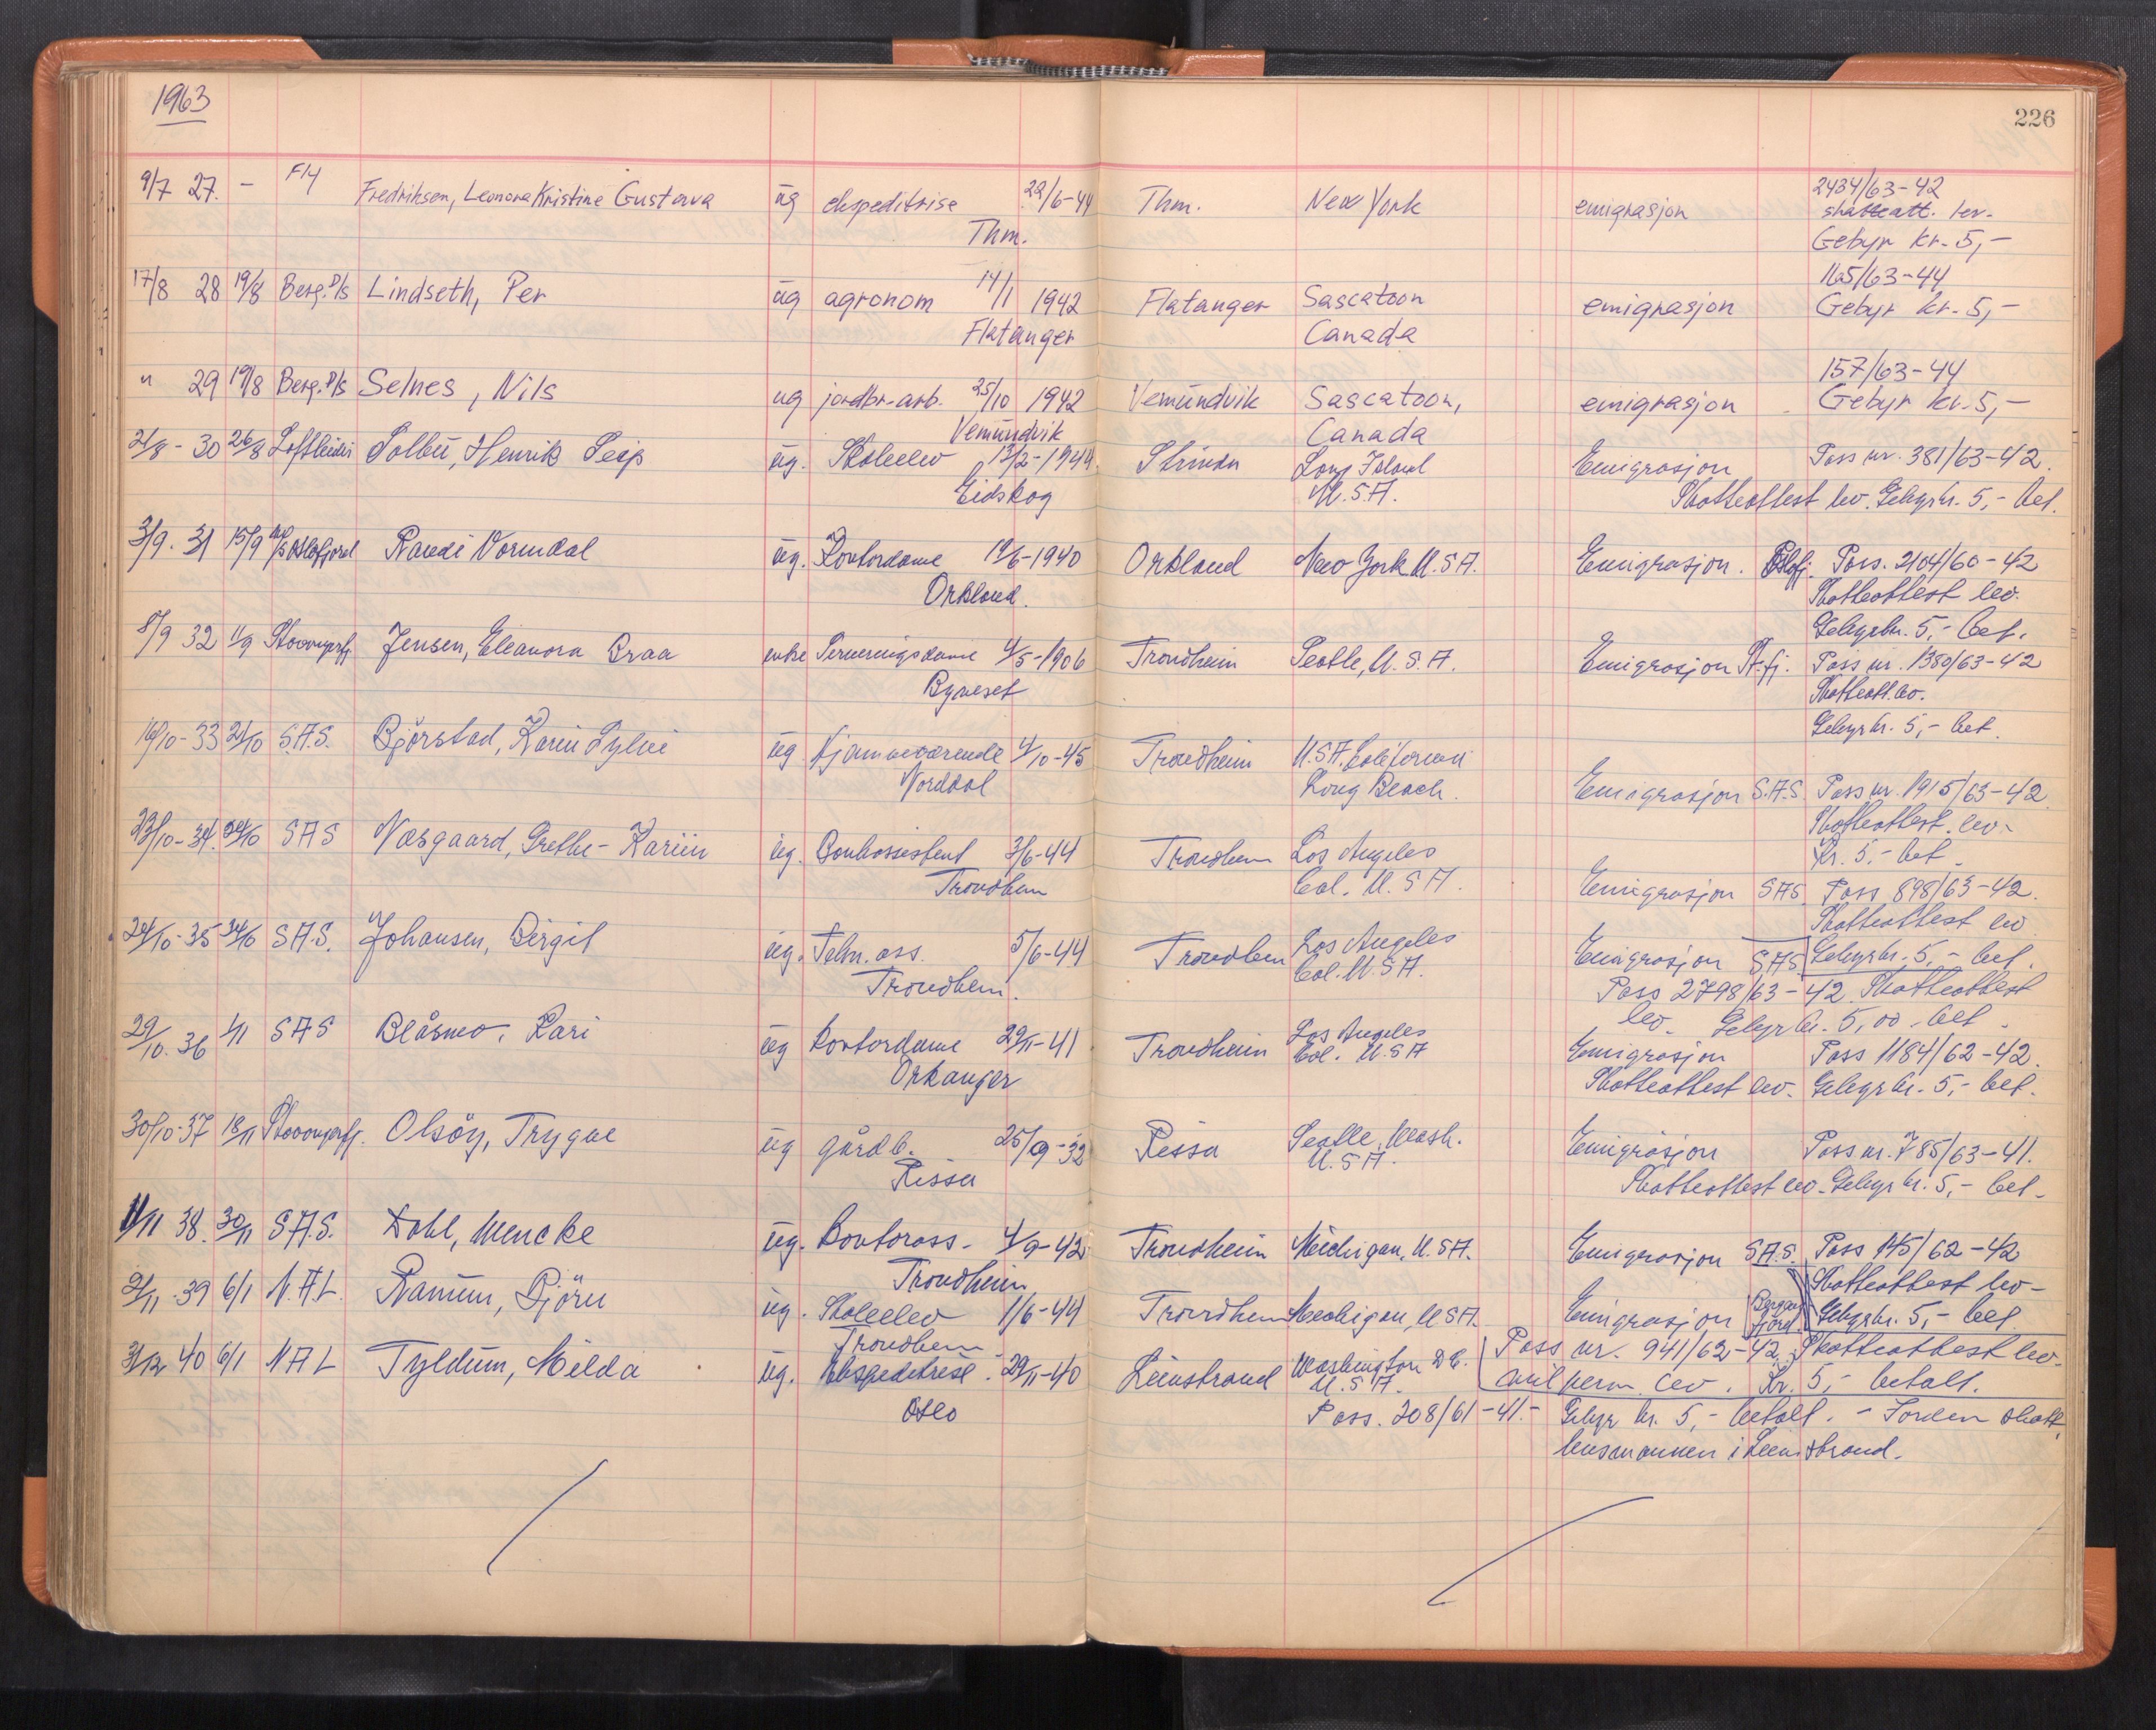 1963
226
9/7 27. - Fly Fredriksen, Leonora Kristine Gustava ug ekspeditrise 22/6-44 Thm. New York emigrasjon 2434/63-42
Thm. skatteatt. lev.
Gebyr kr. 5,-
17/8 28 19/8 Berg. D/S Lindseth, Per ug agronom 14/1 1942 Flatanger Sascatoon emigrasjon 1165/63-44
Flatanger Canada Gebyr kr. 5,-
" 29 19/8 Berg. D/S Selnes, Nils ug jordbr-arb. 25/10 1942 Vemundvik Sascatoon, emigrasjon 157/63-44
Vemundvik Canada Gebyr kr. 5,-
21/8 - 30 26/8 Loftleidir Solbu, Henrik Seip ug. Skoleelev 13/2-1944 Strinda Long Island Emigrasjon Pass nr. 381/63-42.
Eidskog U.S.A. Skatteattest lev. Gebyr kr. 5,- bet.
3/9. 31 15/9 Oslofjord Randi Vormdal ug. Kontordame 19/6-1940 Orkland New York U.S.A. Emigrasjon. Oslofj. Pass. 2104/60-42
Orkland. Skatteattest lev.
Gebyr kr. 5,- bet.
8/9 32 11/9 Stavangerfj. Jensen, Eleanora Braa enke Serveringsdame 4/5-1906 Trondheim Seatle, U.S.A. Emigrasjon St.fj. Pass nr. 1380/63-42
Byneset Skatteatt. lev.
Gebyr kr. 5,- bet.
16/10-33 21/10 S.A.S. Bjørstad, Karin Sylvi ug hjemmeværende 4/10-45 Trondheim U.S.A. California
Norddal Long Beach. Emigrasjon S.A.S. Pass nr. 1915/63-42.
Skatteattest. lev.
23/10-34. 24/10 SAS Næsgaard, Grethe-Kariin ug. Bankassistent 3/6-44 Trondheim Los Angeles Kr. 5,- bet.
Trondheim Cal. U.S.A. Emigrasjon SAS. Pass 898/63-42.
Skatteattest lev
24/10-35 24/10 S.A.S. Johansen, Birgit ug. Telm. ass. 5/6-44 Trondheim Los Angeles Emigrasjon SAS Gebyr kr. 5,- bet.
Trondheim. Cal. U.S.A. Pass 2798/63-42 Skatteattest
lev. Gebyr kr. 5,00 bet.
29/10. 36 1/11 SAS Blåsmo, Kari ug kontordame 29/11-41 Trondheim Los Angeles Emigrasjon Pass 1184/62-42.
Orkanger Cal. U.S.A Skatteattest lev. Gebyr kr. 5,- bet.
30/10-37 18/11 Stavangerfj. Olsøy, Trygve ug gårdb. 25/9-32 Rissa Seatle, Wash. Emigrasjon Pass nr. 785/63-41.
Rissa U.S.A. Skatteattest lev. Gebyr kr. 5,- bet.
11/11 38. 30/11 S.A.S. Dahl, Wencke ug. Kontorass. 4/9-42 Trondheim Michigan, U.S.A. Emigrasjon S.A.S. Pass 145/62-42
Trondheim Skatteattest lev.
21/11. 39 6/1 N.A.L. Ramum, Bjørn ug. Skoleelev 1/6-44 Trondheim Mechigan, USA. Emigrasjon Bergensfjord. Gebyr kr. 5,- bet.
Trondheim Pass nr. 941/62-42. Skatteattest lev.
3/12 40 6/1 N A L Tyldum, Milda ug. Ekspeditrise. 29/11-40 Leinstrand Washington D.C. mil perm lev. Kr. 5,- betalt.
Oslo U.S.A.
Pass. 208/61-41.- Gebyr kr. 5,- betalt. -
lensmannen i Leinstrand.